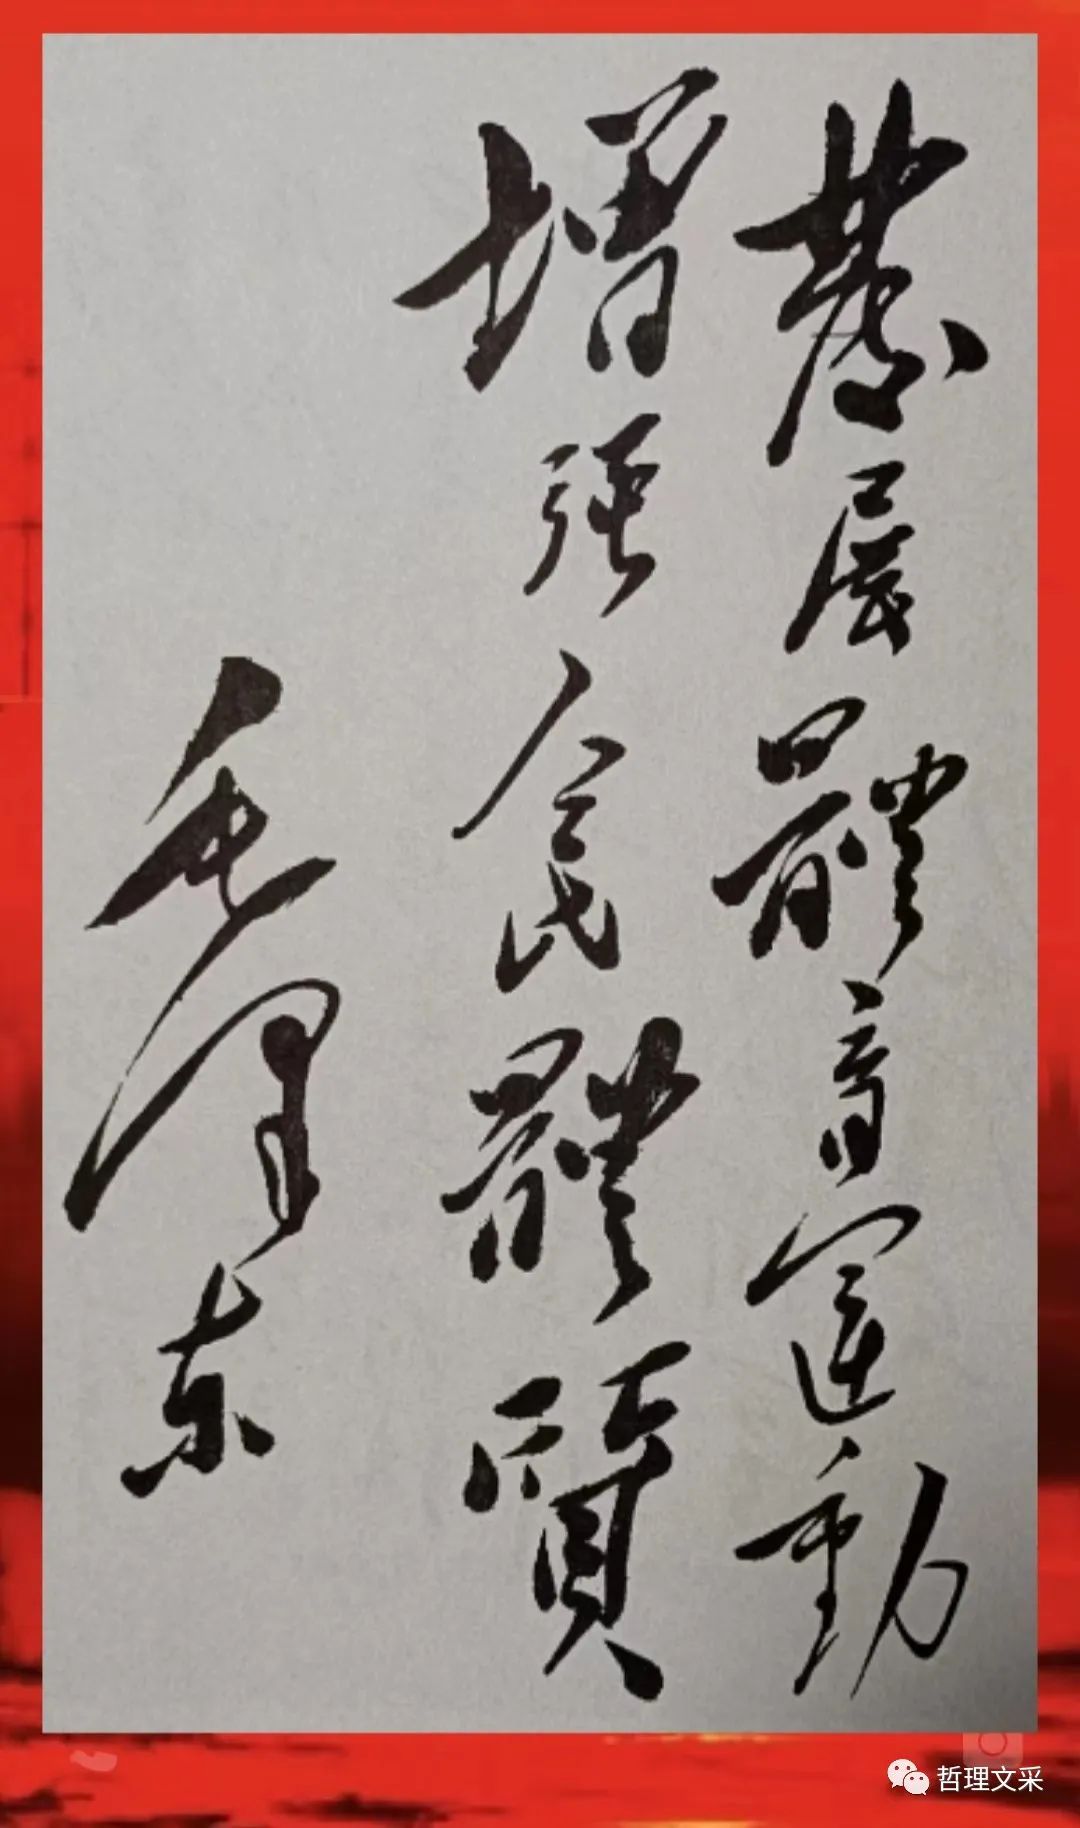 發展體育運動
增强人民體質
毛泽东
哲理文采